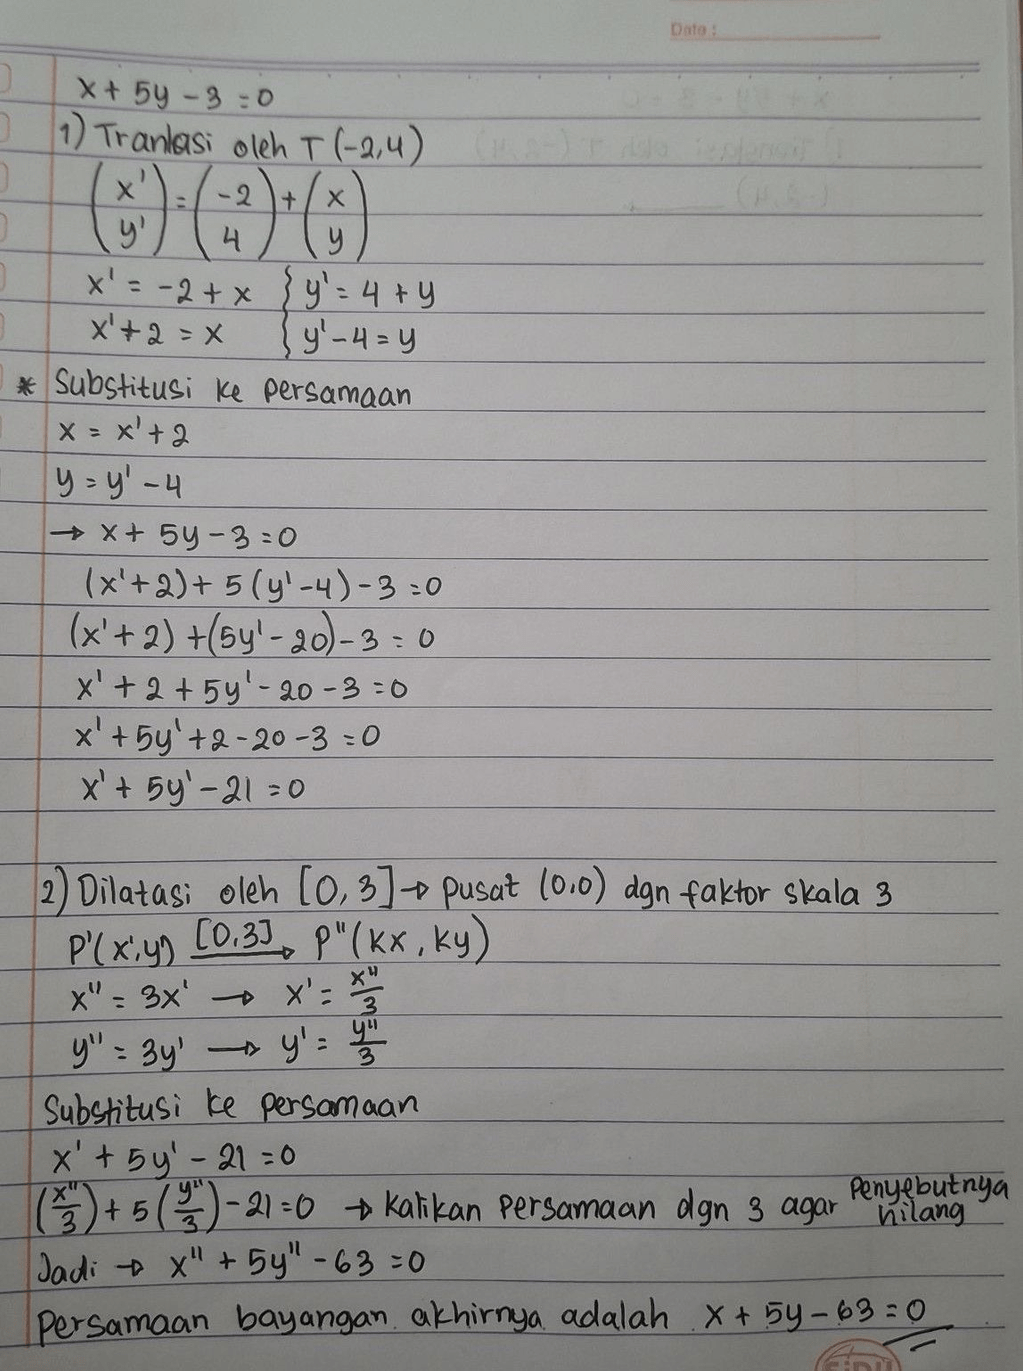 Date :
x + 5y - 3 = 0
1) Tranlasi oleh T (-2,4)
(x' y') = (-2 4) + (x y)
x' = -2 + x } y' = 4 + y
x' + 2 = x } y' - 4 = y
* Substitusi ke persamaan
x = x' + 2
y = y' - 4
→ x + 5y - 3 = 0
(x' + 2) + 5 (y' - 4) - 3 = 0
(x' + 2) + (5y' - 20) - 3 = 0
x' + 2 + 5y' - 20 - 3 = 0
x' + 5y' + 2 - 20 - 3 = 0
x' + 5y' - 21 = 0
2) Dilatasi oleh [0,3] → pusat (0,0) dgn faktor skala 3
P'(x',y') [0,3] → P"(kx, ky)
x" = 3x' → x' = x"/3
y" = 3y' → y' = y"/3
Substitusi ke persamaan
x' + 5y' - 21 = 0
(x"/3) + 5 (y"/3) - 21 = 0 → Kalikan persamaan dgn 3 agar Penyebutnya hilang
Jadi → x" + 5y" - 63 = 0
Persamaan bayangan akhirnya adalah x + 5y - 63 = 0
SiDU